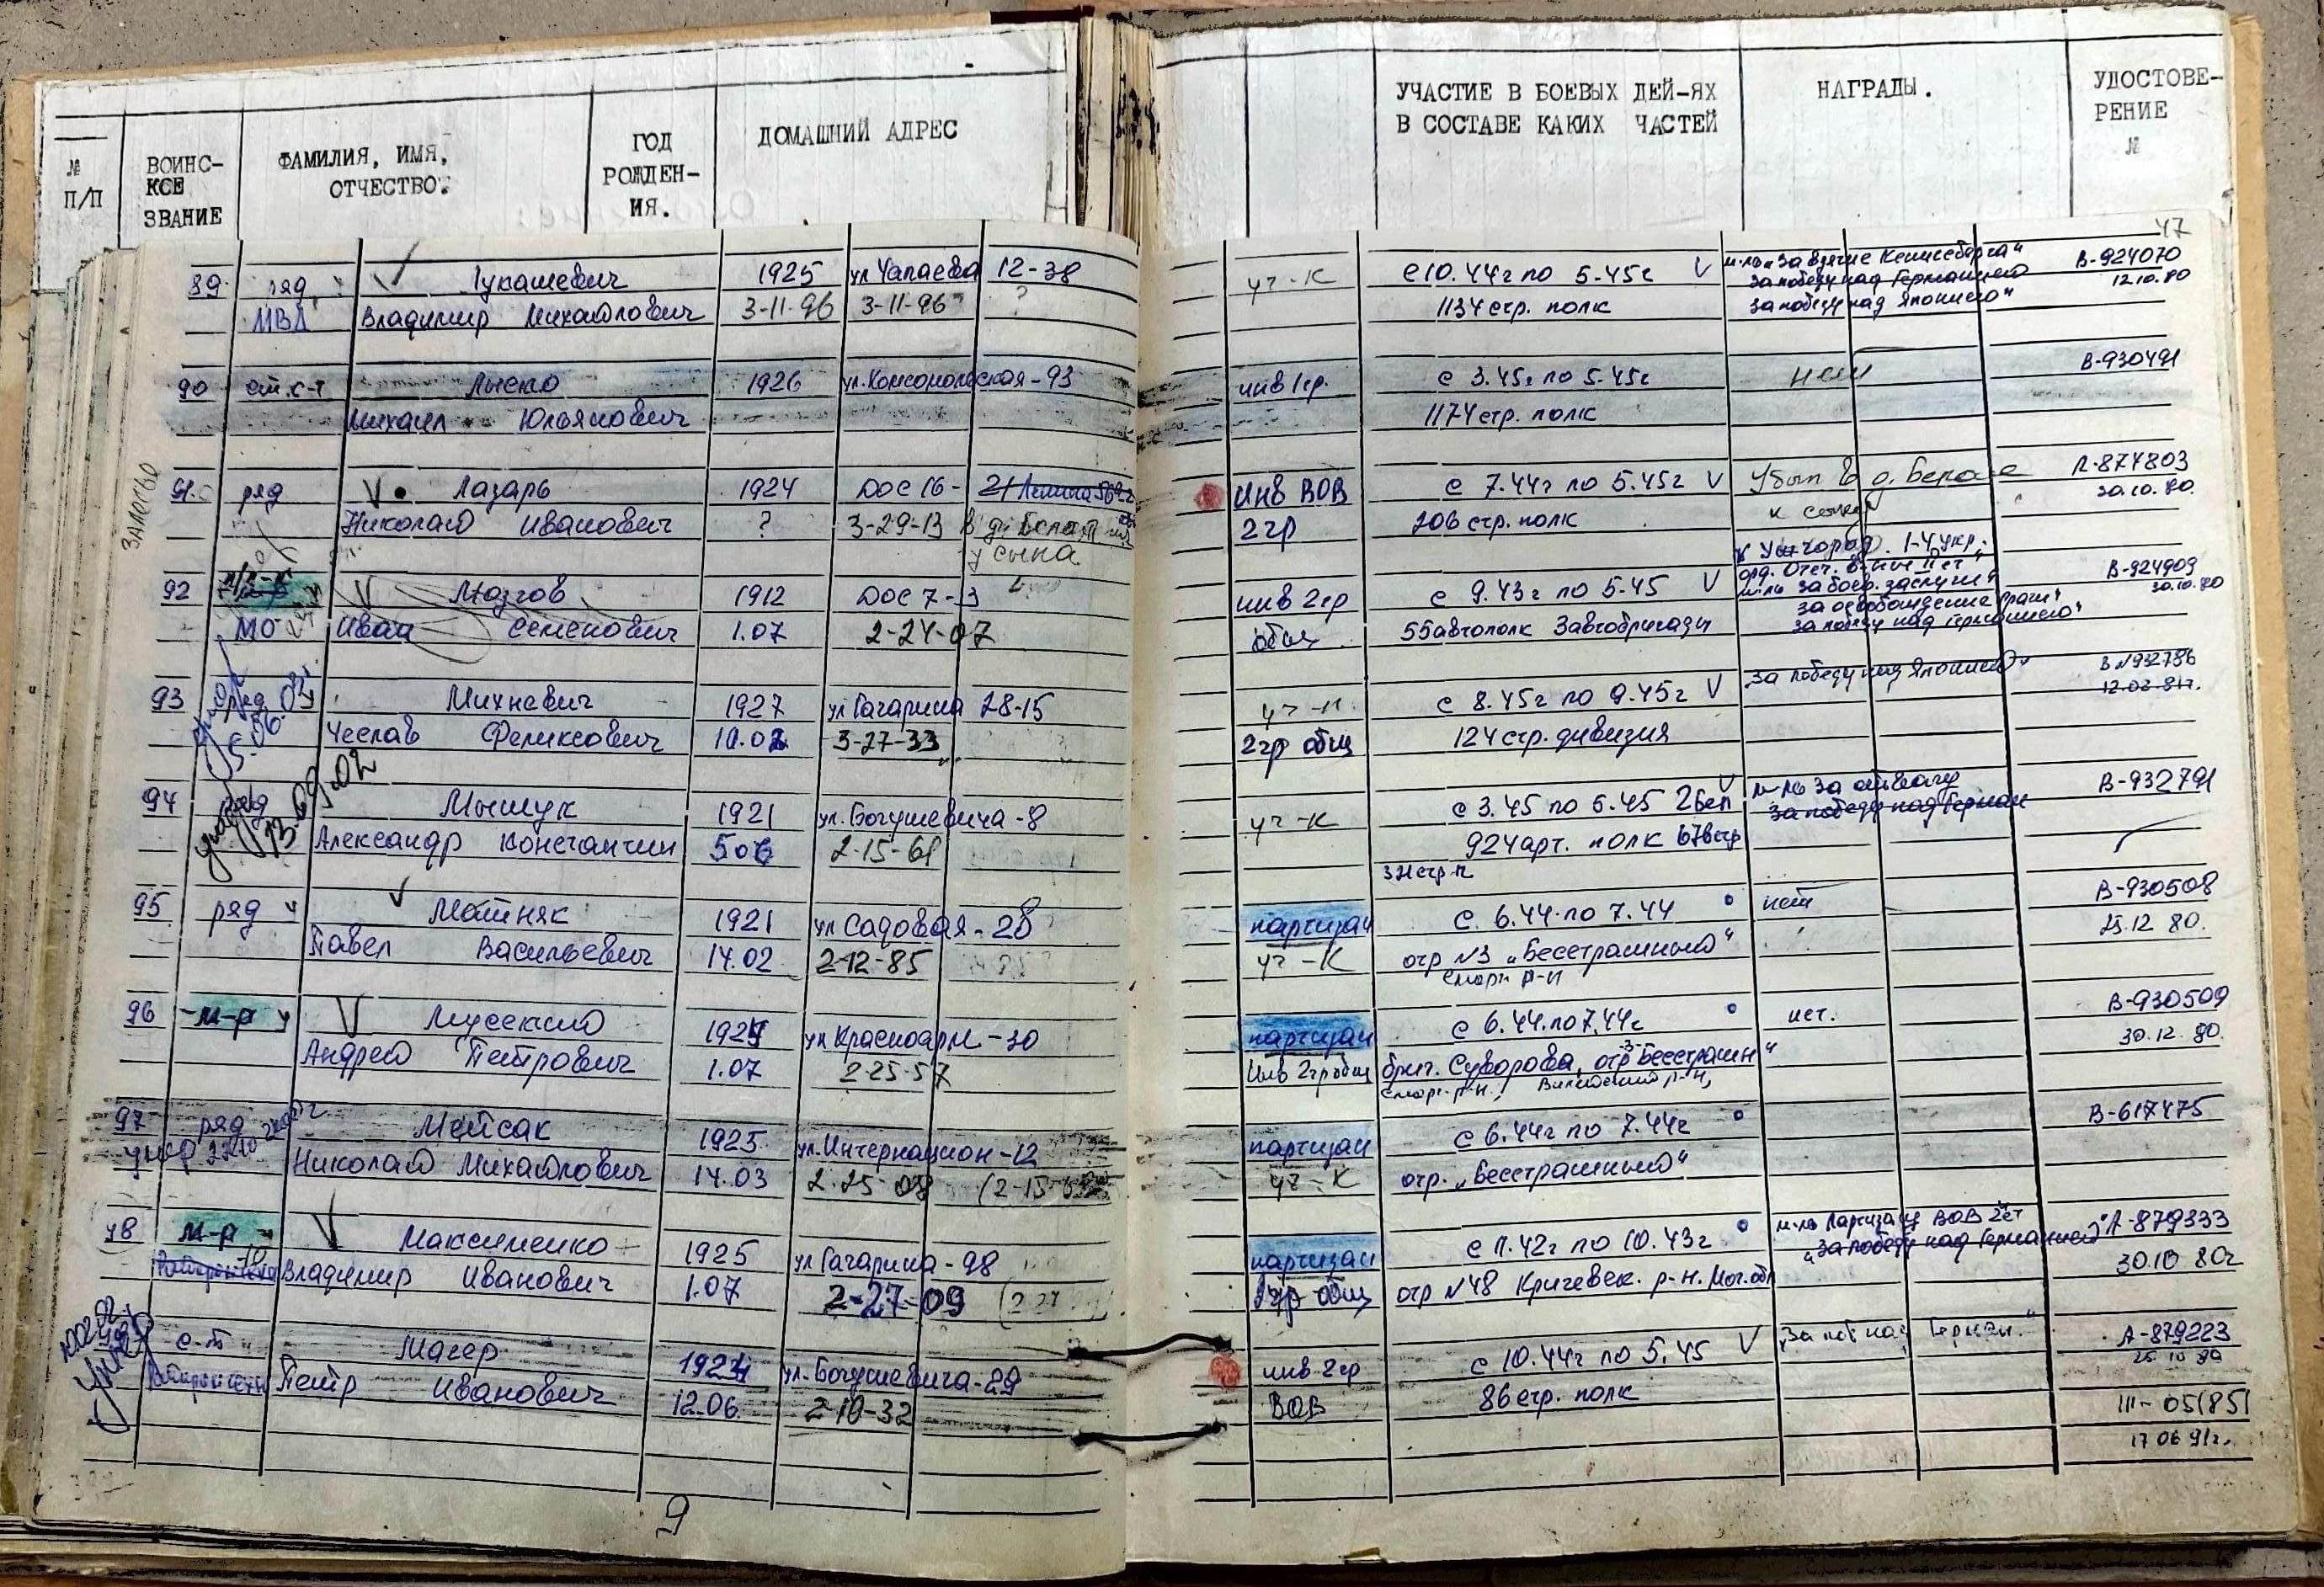 № П/П
ВОИНС-КОЕ ЗВАНИЕ
ФАМИЛИЯ, ИМЯ, ОТЧЕСТВО.
ГОД РОЖДЕН-ИЯ.
ДОМАШНИЙ АДРЕС
УЧАСТИЕ В БОЕВЫХ ДЕЙ-ЯХ
В СОСТАВЕ КАКИХ ЧАСТЕЙ
НАГРАДЫ.
УДОСТОВЕ-РЕНИЕ №
47
89 ряд Лукашевич 1925 ул Чапаева 12-38 уч-к с 10.44г по 5-45г V м-ль "За взятие Кенигсберга" В-924070
МВД Владимир Михайлович 3-11-96 3-11-96 ? 1134 стр. полк За победу над Германией 12.10.80
За победу над Японией"
90 ст.с-т Лыско 1926 ул. Комсомольская-93 инв 1гр. с 3.45г по 5.45г нет В-930491
Михаил Юльянович 1174 стр. полк
91 ряд V Лазарь 1924 ДОС 16- 21 Ленина инв ВОВ с 7.44г по 5.45г V Убыл в д. Белая А-874803
Николай Иванович ? 3-29-13 в д. Белая 2гр 206 стр. полк к семье 30.10.80.
у сына
92 V Мозгов 1912 ДОС 7-3 инв 2гр с 9.43г по 5-45 V орд. Отеч. В-ны II ст" В-924909
МО Иван Семенович 1.07 2-24-07 общ 55автополк 3автобригады м-ль За боев. заслуги" 30.10.80
за освобождение Праги"
за победу над Германией"
93 ряд Михневич 1927 ул Гагарина 28-15 уч-к с 8.45г по 9.45г V За победу над Японией" В №932786
Чеслав Феликсович 10.02 3-27-33 2гр общ 124 стр. дивизия 12.03.81г.
94 ряд Мышук 1921 ул. Богушевича-8 уч-к с 3.45 по 5.45 2Бел V м-ль За отвагу В-932791
Александр Константин 506 2-15-61 924арт. полк За победу над Герман
95 ряд V Мотняк 1921 ул Садовая-28 партизан с 6.44 по 7.44 нет В-930508
Павел Васильевич 14.02 2-12-85 уч-к отр №3 "Бесстрашный" 25.12 80.
Сморг р-н
96 м-р V Мусский 1924 ул Красноарм-30 партизан с 6.44.по 7.44г нет. В-930509
Андрей Петрович 1.07 2-25-57 инв 2гр общ бриг. Суворова, отр Бесстрашн" 30.12.80.
Сморг. р-н
97 ряд Мойсак 1925 ул. Интернацион-12 партизан с 6.44г по 7.44г В-617475
Николай Михайлович 14.03 2-25-08 уч-к отр. "Бесстрашный"
98 м-р V Максименко 1925 ул Гагарина-98 партизан с 1.42г по 10.43г м-ль Партизану ВОВ 2ст А-879333
Владимир Иванович 1.07 2-27-09 2гр общ отр №48 Кричевск. р-н. Мог. обл "За победу над Германией" 30.10 80г
с-т Магер 1924 ул. Богушевича-29 инв 2гр с 10.44г по 5.45 V За поб над Герман." А-879223
Петр Иванович 12.06 2-10-32 ВОВ 86 стр. полк 25 10 80
III-051851
17 06 91г.
9